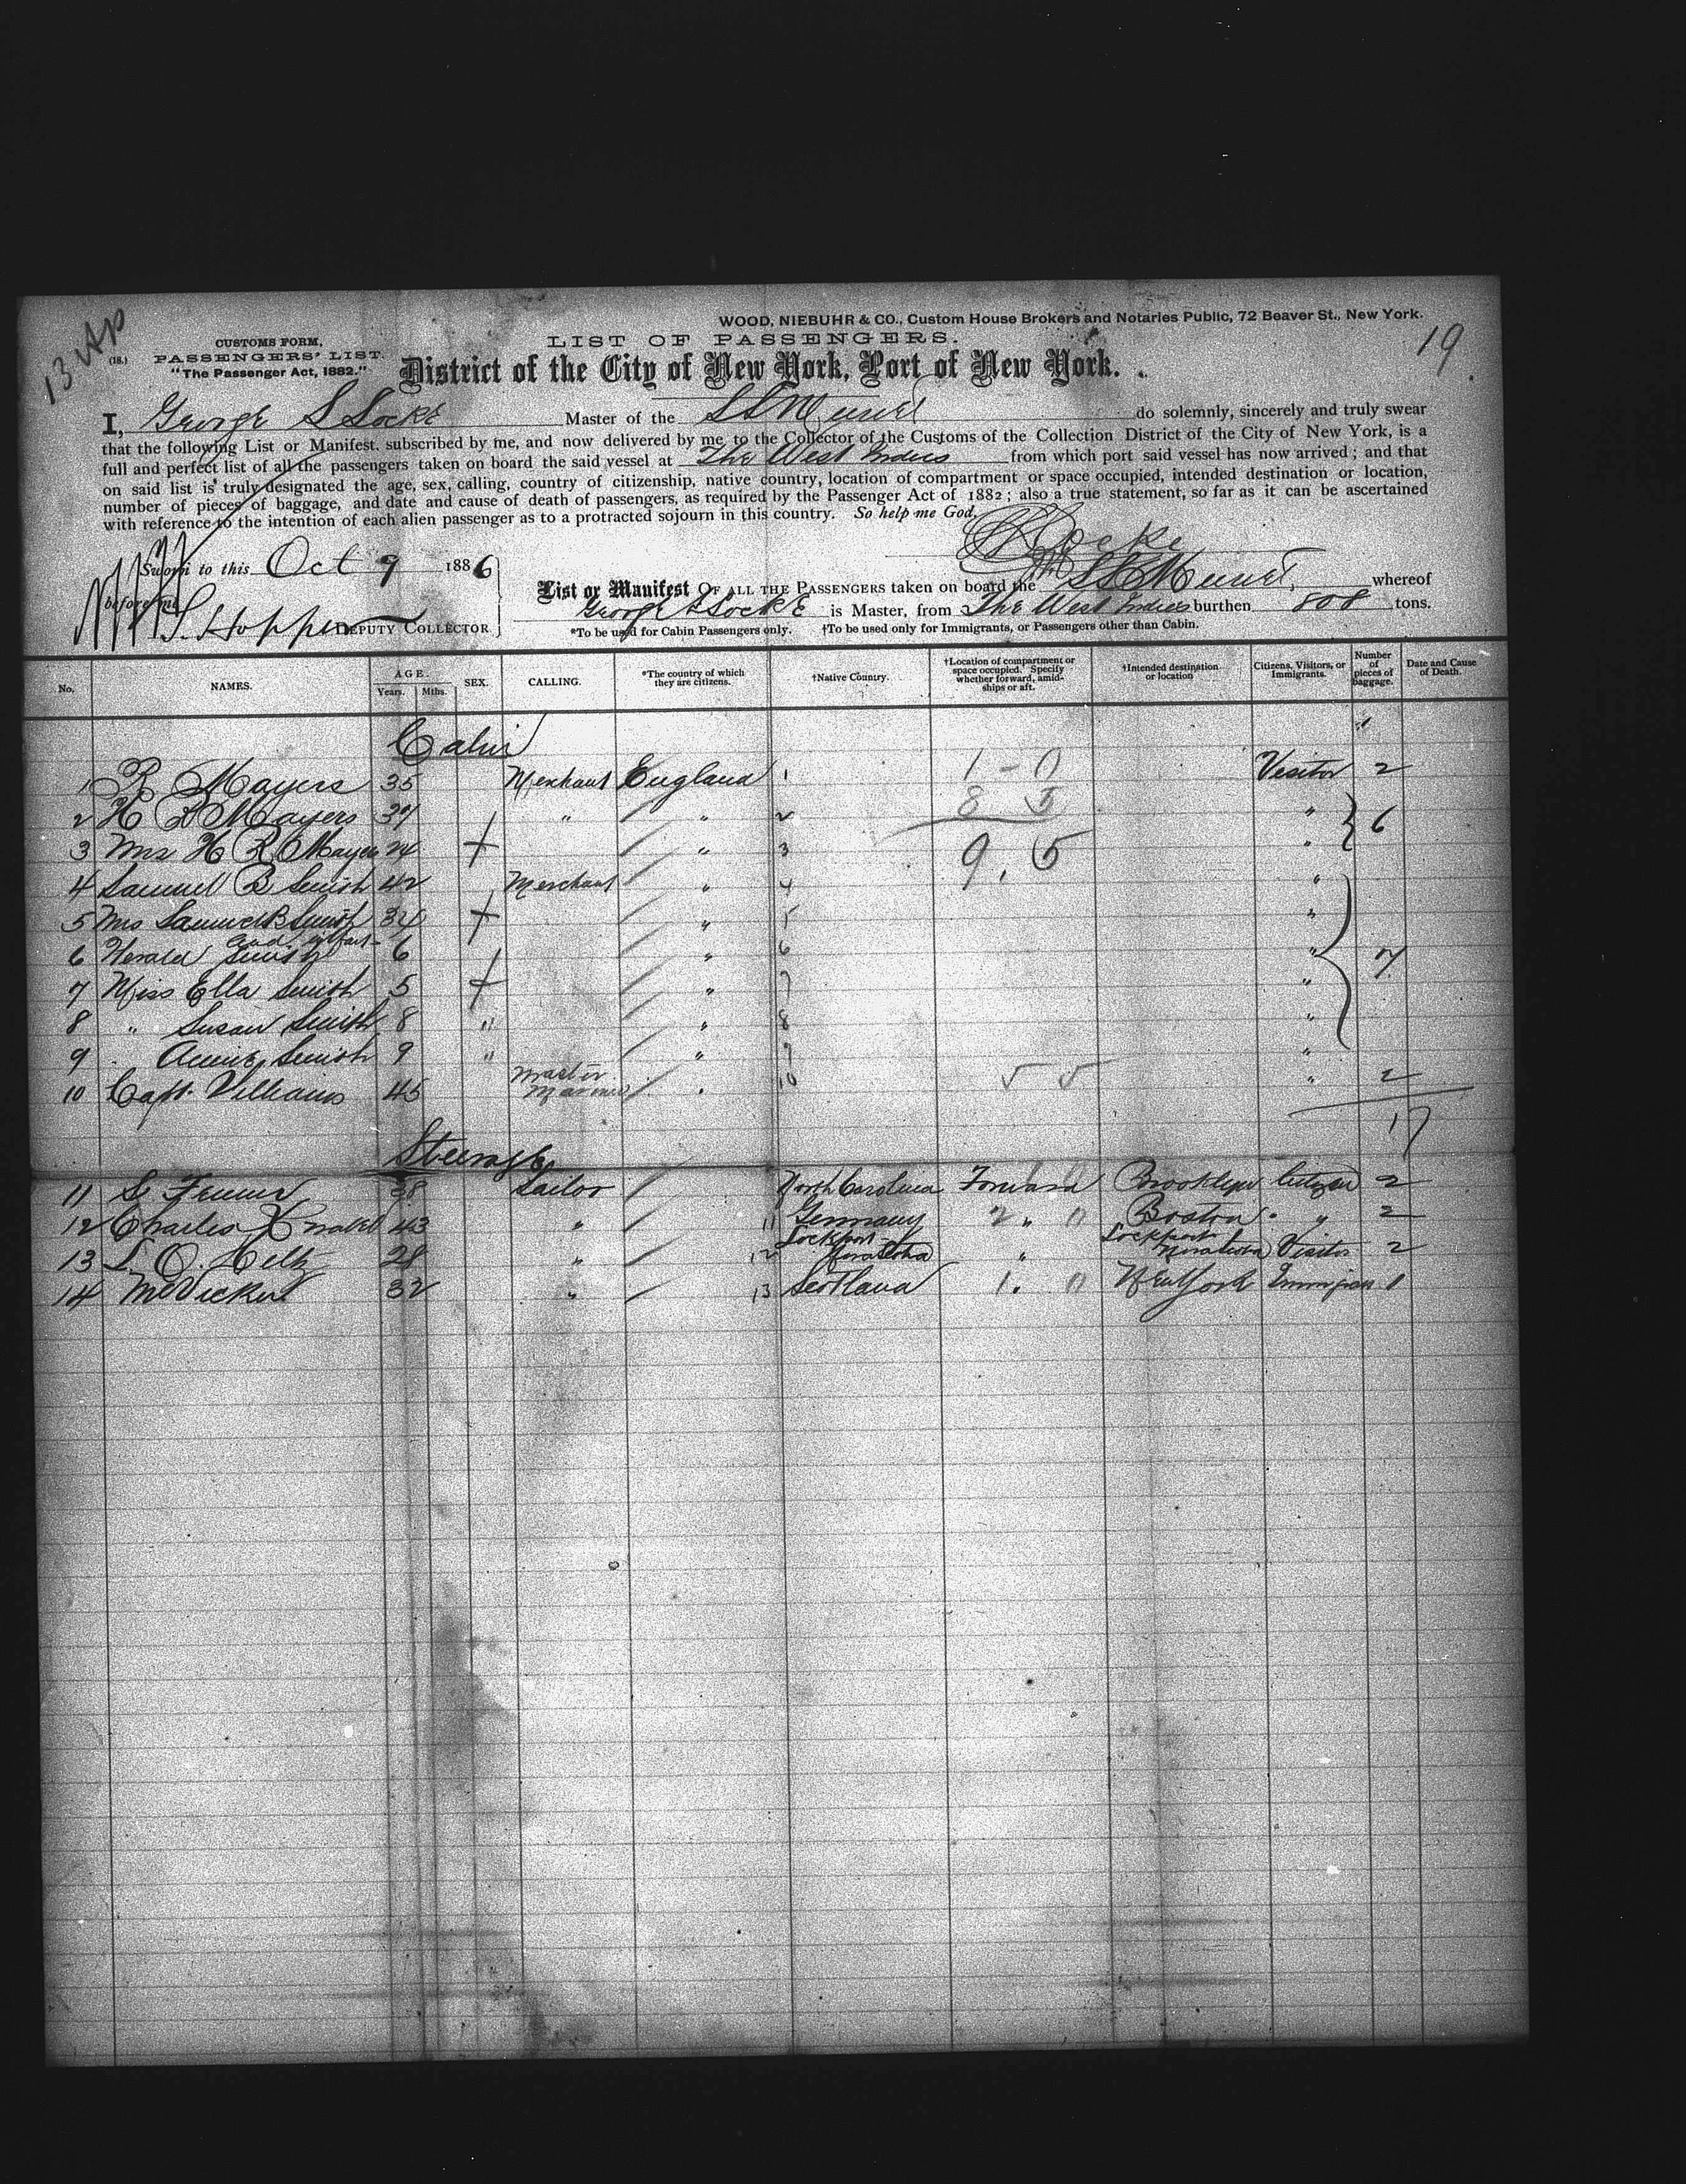 13 
WOOD, NIEBUHR & CO., Custom House Brokers and Notaries Public, 72 Beaver St., New York.
19
(18.)
CUSTOMS FORM,
PASSENGERS' LIST.
"The Passenger Act, 1882."
LIST OF PASSENGERS.
District of the City of New York, Port of New York.
I, George S Locke Master of the SS Muriel do solemnly, sincerely and truly swear
that the following List or Manifest, subscribed by me, and now delivered by me to the Collector of the Customs of the Collection District of the City of New York, is a
full and perfect list of all the passengers taken on board the said vessel at The West Indies from which port said vessel has now arrived; and that
on said list is truly designated the age, sex, calling, country of citizenship, native country, location of compartment or space occupied, intended destination or location,
number of pieces of baggage, and date and cause of death of passengers, as required by the Passenger Act of 1882; also a true statement, so far as it can be ascertained
with reference to the intention of each alien passenger as to a protracted sojourn in this country. So help me God,
Locke
Sworn to this Oct 9 1886
before me
S. Hopper DEPUTY COLLECTOR.
List or Manifest OF ALL THE PASSENGERS taken on board the SS Muriel, whereof
George S Locke is Master, from The West Indies burthen 808 tons.
*To be used for Cabin Passengers only. †To be used only for Immigrants, or Passengers other than Cabin.
No. NAMES. AGE. Years. Mths. SEX. CALLING. *The country of which they are citizens. †Native Country. †Location of compartment or space occupied. Specify whether forward, amidships or aft. †Intended destination or location Citizens, Visitors, or Immigrants. Number of pieces of baggage. Date and Cause of Death.
Cabin
1 R Mayers 35 Merchant England 1 1 - 0 Visitor 2
2 H Mayers 37 " " 2 8 5 " 6
3 Mrs H R Mayers 24 + " 3 9. 5 "
4 Samuel B Smith 42 Merchant " 4 "
5 Mrs Samuel B Smith 34 + " 5 " 7
and infant
6 Herald Smith 6 " 6 "
7 Miss Ella Smith 5 + " 7 "
8 " Susan Smith 8 " " 8 "
9 " Annie Smith 9 " " 9 "
10 Capt. Williams 45 Master Mariner " 10 " 2
17
Steerage
11 S. 38 Sailor North Carolina Forward Brooklyn Citizen 2
12 Charles 43 " 11 Germany 2 " 0 Boston " 2
13 L. O. 28 " 12 Lockport Nova Scotia " Lockport Nova Scotia Visitor 2
14 McVicker 32 " 13 Scotland 1. 0 New York Immigrant 1